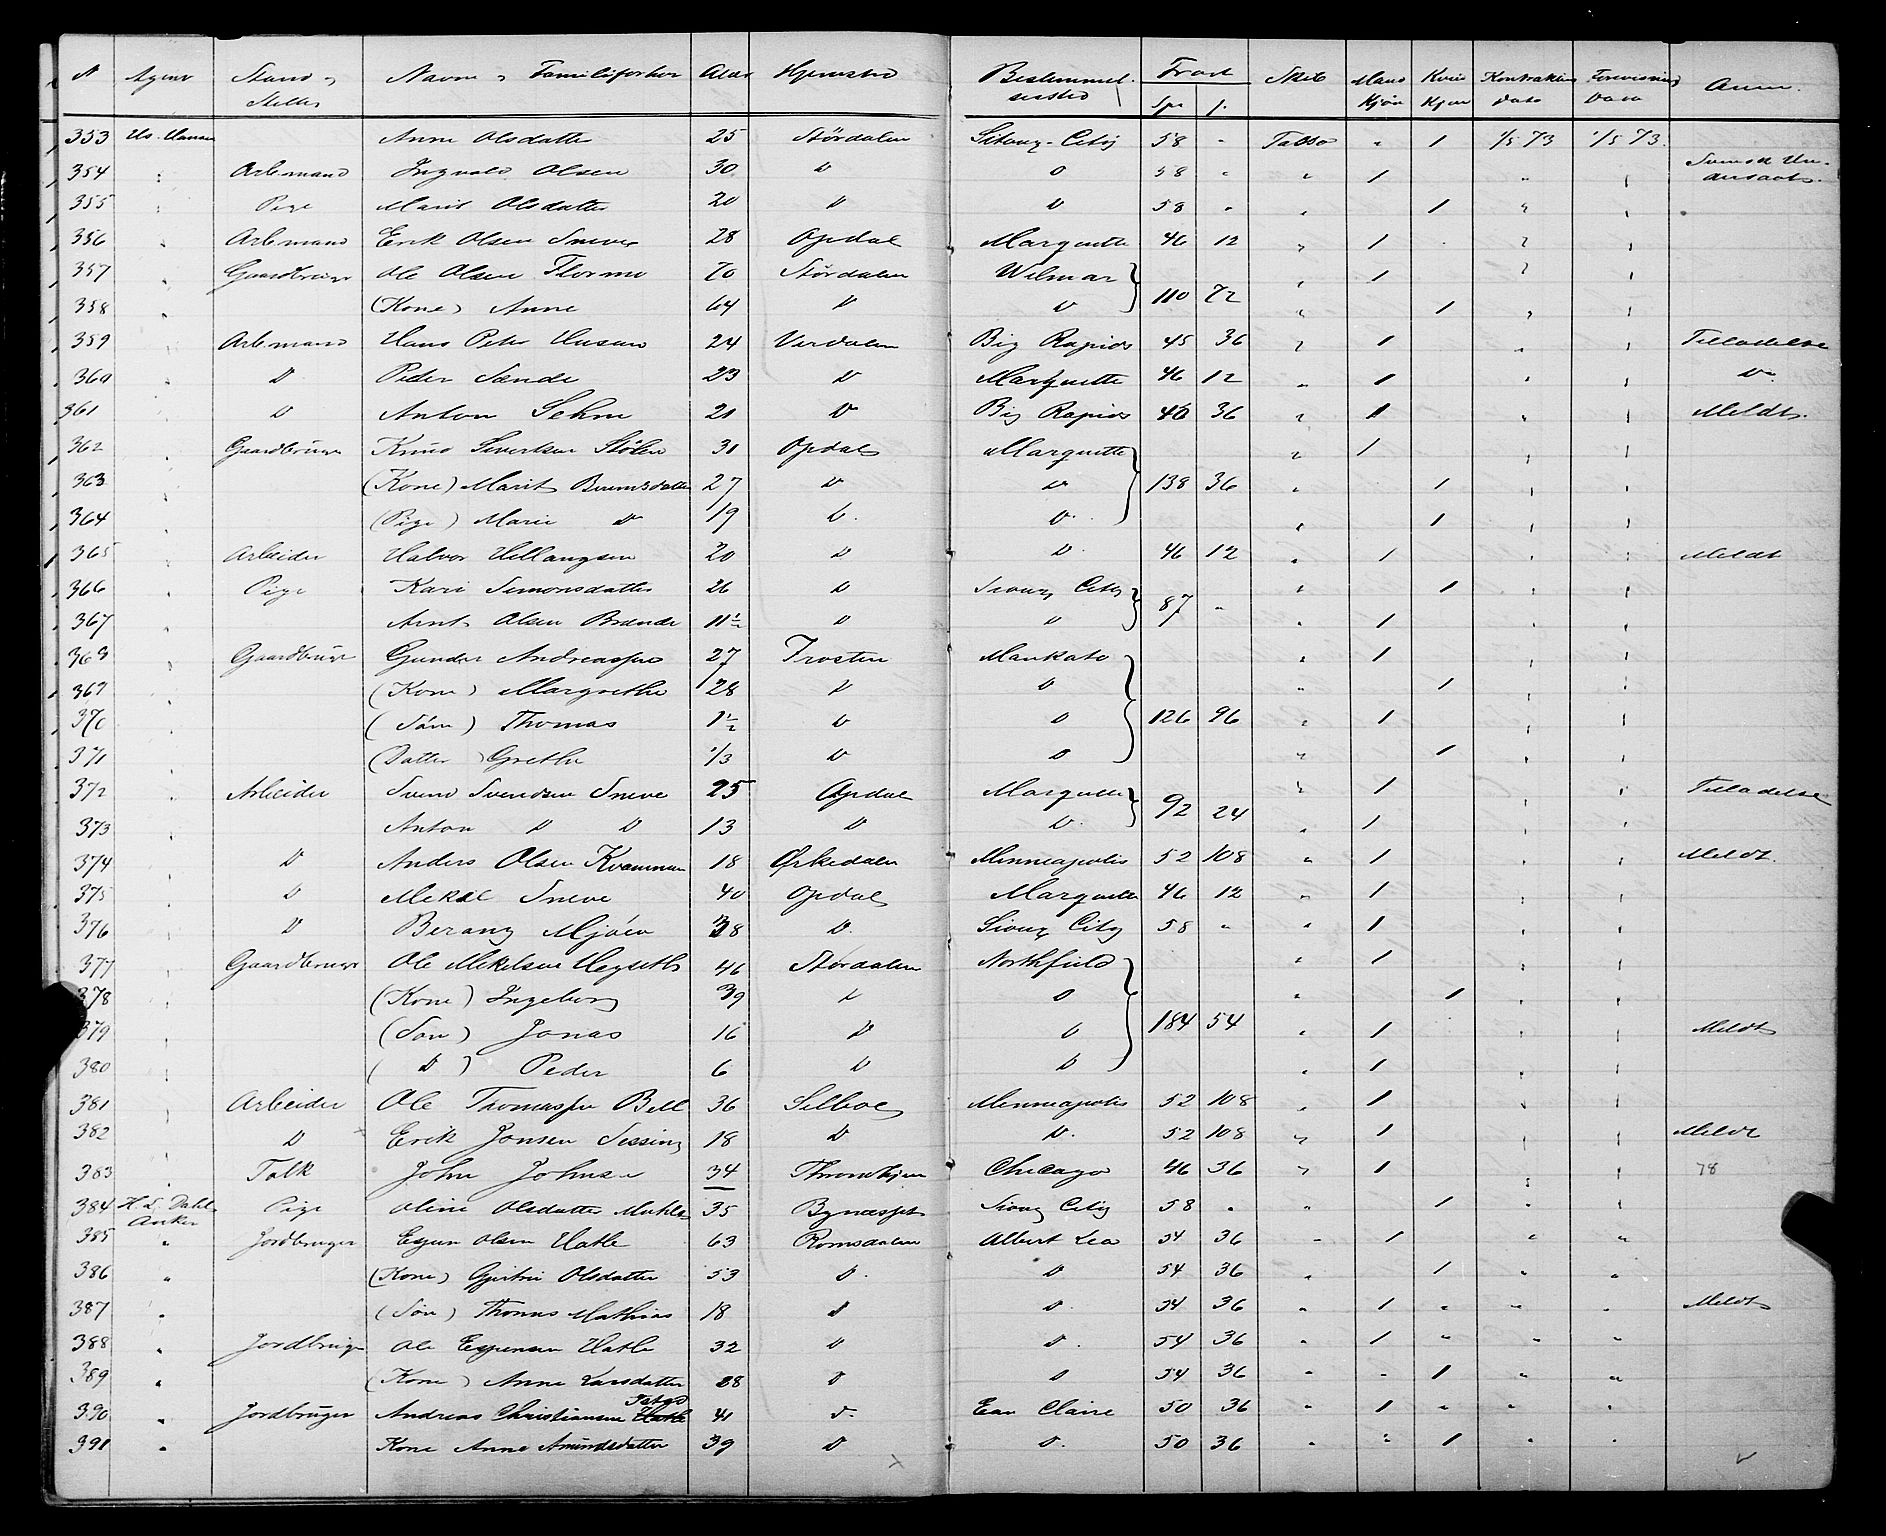 N Agent Stand og Stilling Navn og Familieforhor Alder Hjemsted Bestemmelsessted Fragt Spd ß. Skib Mand Kjøn Kvin Kjøn Kontraktens dato Forevisnings Dato Anm.
353 Anne Olsdatter 25 Størdalen Sioux-City 58 - Tasso " 1 1/5 73 1/5 73
354 " Arbmand Ingvald Olsen 30 D D 58 " " 1 " "
355 " Pige Marit Olsdatter 20 D D 58 " " 1 " "
356 " Arbmand Erik Olsen Sneve 28 Opdal Marquette 46 12 " 1 " "
357 " Gaardbruger Ole Olsen Flormo 70 Størdalen Wilmar " 1 " "
358 " (Kone) Anne 64 D D 110 72 " 1 " "
359 " Arbmand Hans Peter Husan 24 Verdalen Big Rapids 45 36 " 1 " " Tilladelse
360 " D Peder Sende 23 D Marquette 46 12 " 1 " " D
361 D Anton Sehm 21 D Big Rapids 46 36 " 1 " " Meldt.
362 " Gaardbruger Knud Sivertsen Stølen 31 Opdal Marquette " 1 " "
363 " (Kone) Marit 27 D D 138 36 " 1 " "
364 " (Pige) Marie D 19 D. D. " 1 " "
365 " Arbeider Halvor 20 D D 46 12 " 1 " " Meldt
366 " Pige Kari Simonsdatter 26 D Sioux City " 1 " "
367 " Arnt Olsen Brende 11½ D D 87 " " 1 " "
368 " Gaardbruger Gunder Andreassen 27 Frosten Mankato " 1 " "
369 " (Kone) Margrethe 28 D D " 1 " "
370 " (Søn) Thomas 1½ D D 126 96 " 1 " "
371 " (Datter) Grethe 1/3 D D " 1 " "
372 " Arbeider Svend Svendsen Sneve 25 Opdal Marquette " 1 " " Tilladelse
373 " Anton D D 13 D D. 92 24 " 1 " "
374 " D Anders Olsen Kvammen 18 Ørkedalen Minneapolis 52 108 " 1 " " Meldt.
375 " D Mekal Sneve 40 Opdal Marquette 46 12 " 1 " "
376 " D Mjøen 38 D. Sioux City 58 " " 1 " "
377 " Gaardbruger Ole Mikelsen 46 Størdalen Northfield " 1 " "
378 " (Kone) Ingeborg 39 D D " 1 " "
379 " (Søn) Jonas 16 D D 184 54 " 1 " " Meldt
380 " (D) Peder 6 D D " 1 " "
381 " Arbeider Ole Thomassen Bell 36 Selboe Minneapolis 52 108 " 1 " "
382 " D Erik Jonsen Sessing 18 D D. 52 108 " 1 " " Meldt
383 " Tolk John Johnsen 34 Throndhjem Chicago 46 36 " 1 " " 78
384 H. L. Dahl Pige Oline Olsdatter 35 Bynæsset Sioux City 58 " " 1 " "
Anker
385 " Jordbruger Espen Olsen Hatle 63 Romsdalen Albert Lea 54 36 " 1 " "
386 " (Kone) Gjertrud Olsdatter 53 D. D 54 36 " 1 " "
387 " (Søn) Thomas Mathias 18 D D. 54 36 " 1 " " " Meldt
388 " Jordbruger Ole Espensen Hatle 32 D D. 54 36 " 1 " " "
389 " (Kone) Anne Larsdatter 28 D D 54 36 " " 1 " "
390 " Jordbruger Andreas Christiansen 41 D. Eau Claire 50 36 " 1 " " "
391 " Kone Anne Amundsdatter 39 D D. 50 36 " " 1 " "